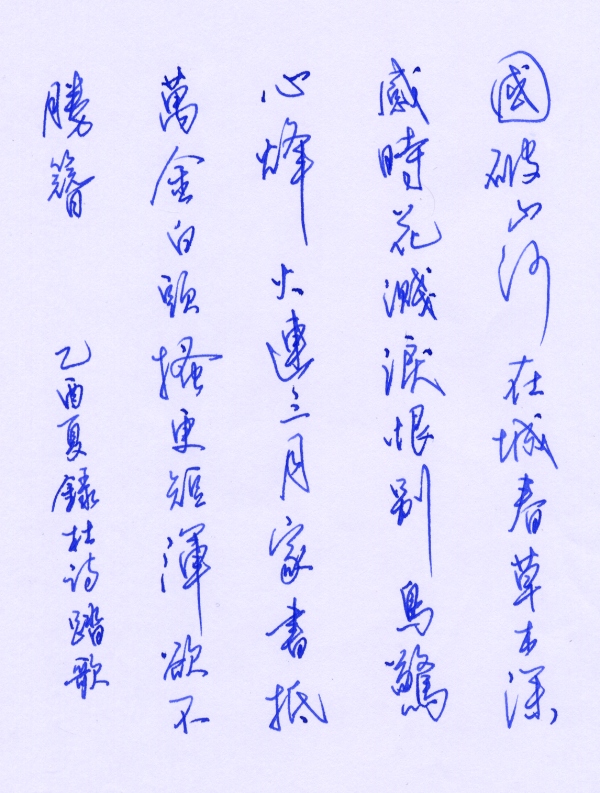 國破山河在城春草木深
感時花濺淚恨别鳥驚
心烽火連三月家書抵
萬金白頭搔更短渾欲不
勝簪
乙酉夏録杜詩踏歌